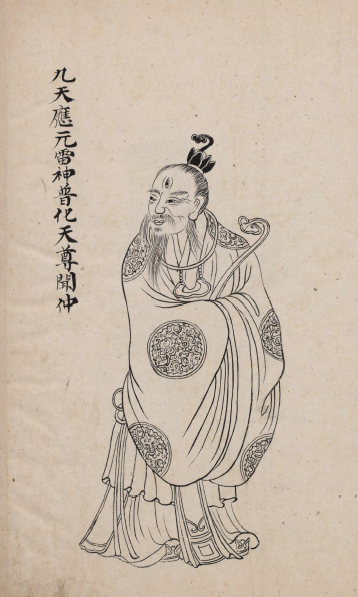 九天應元雷神普化天尊聞仲